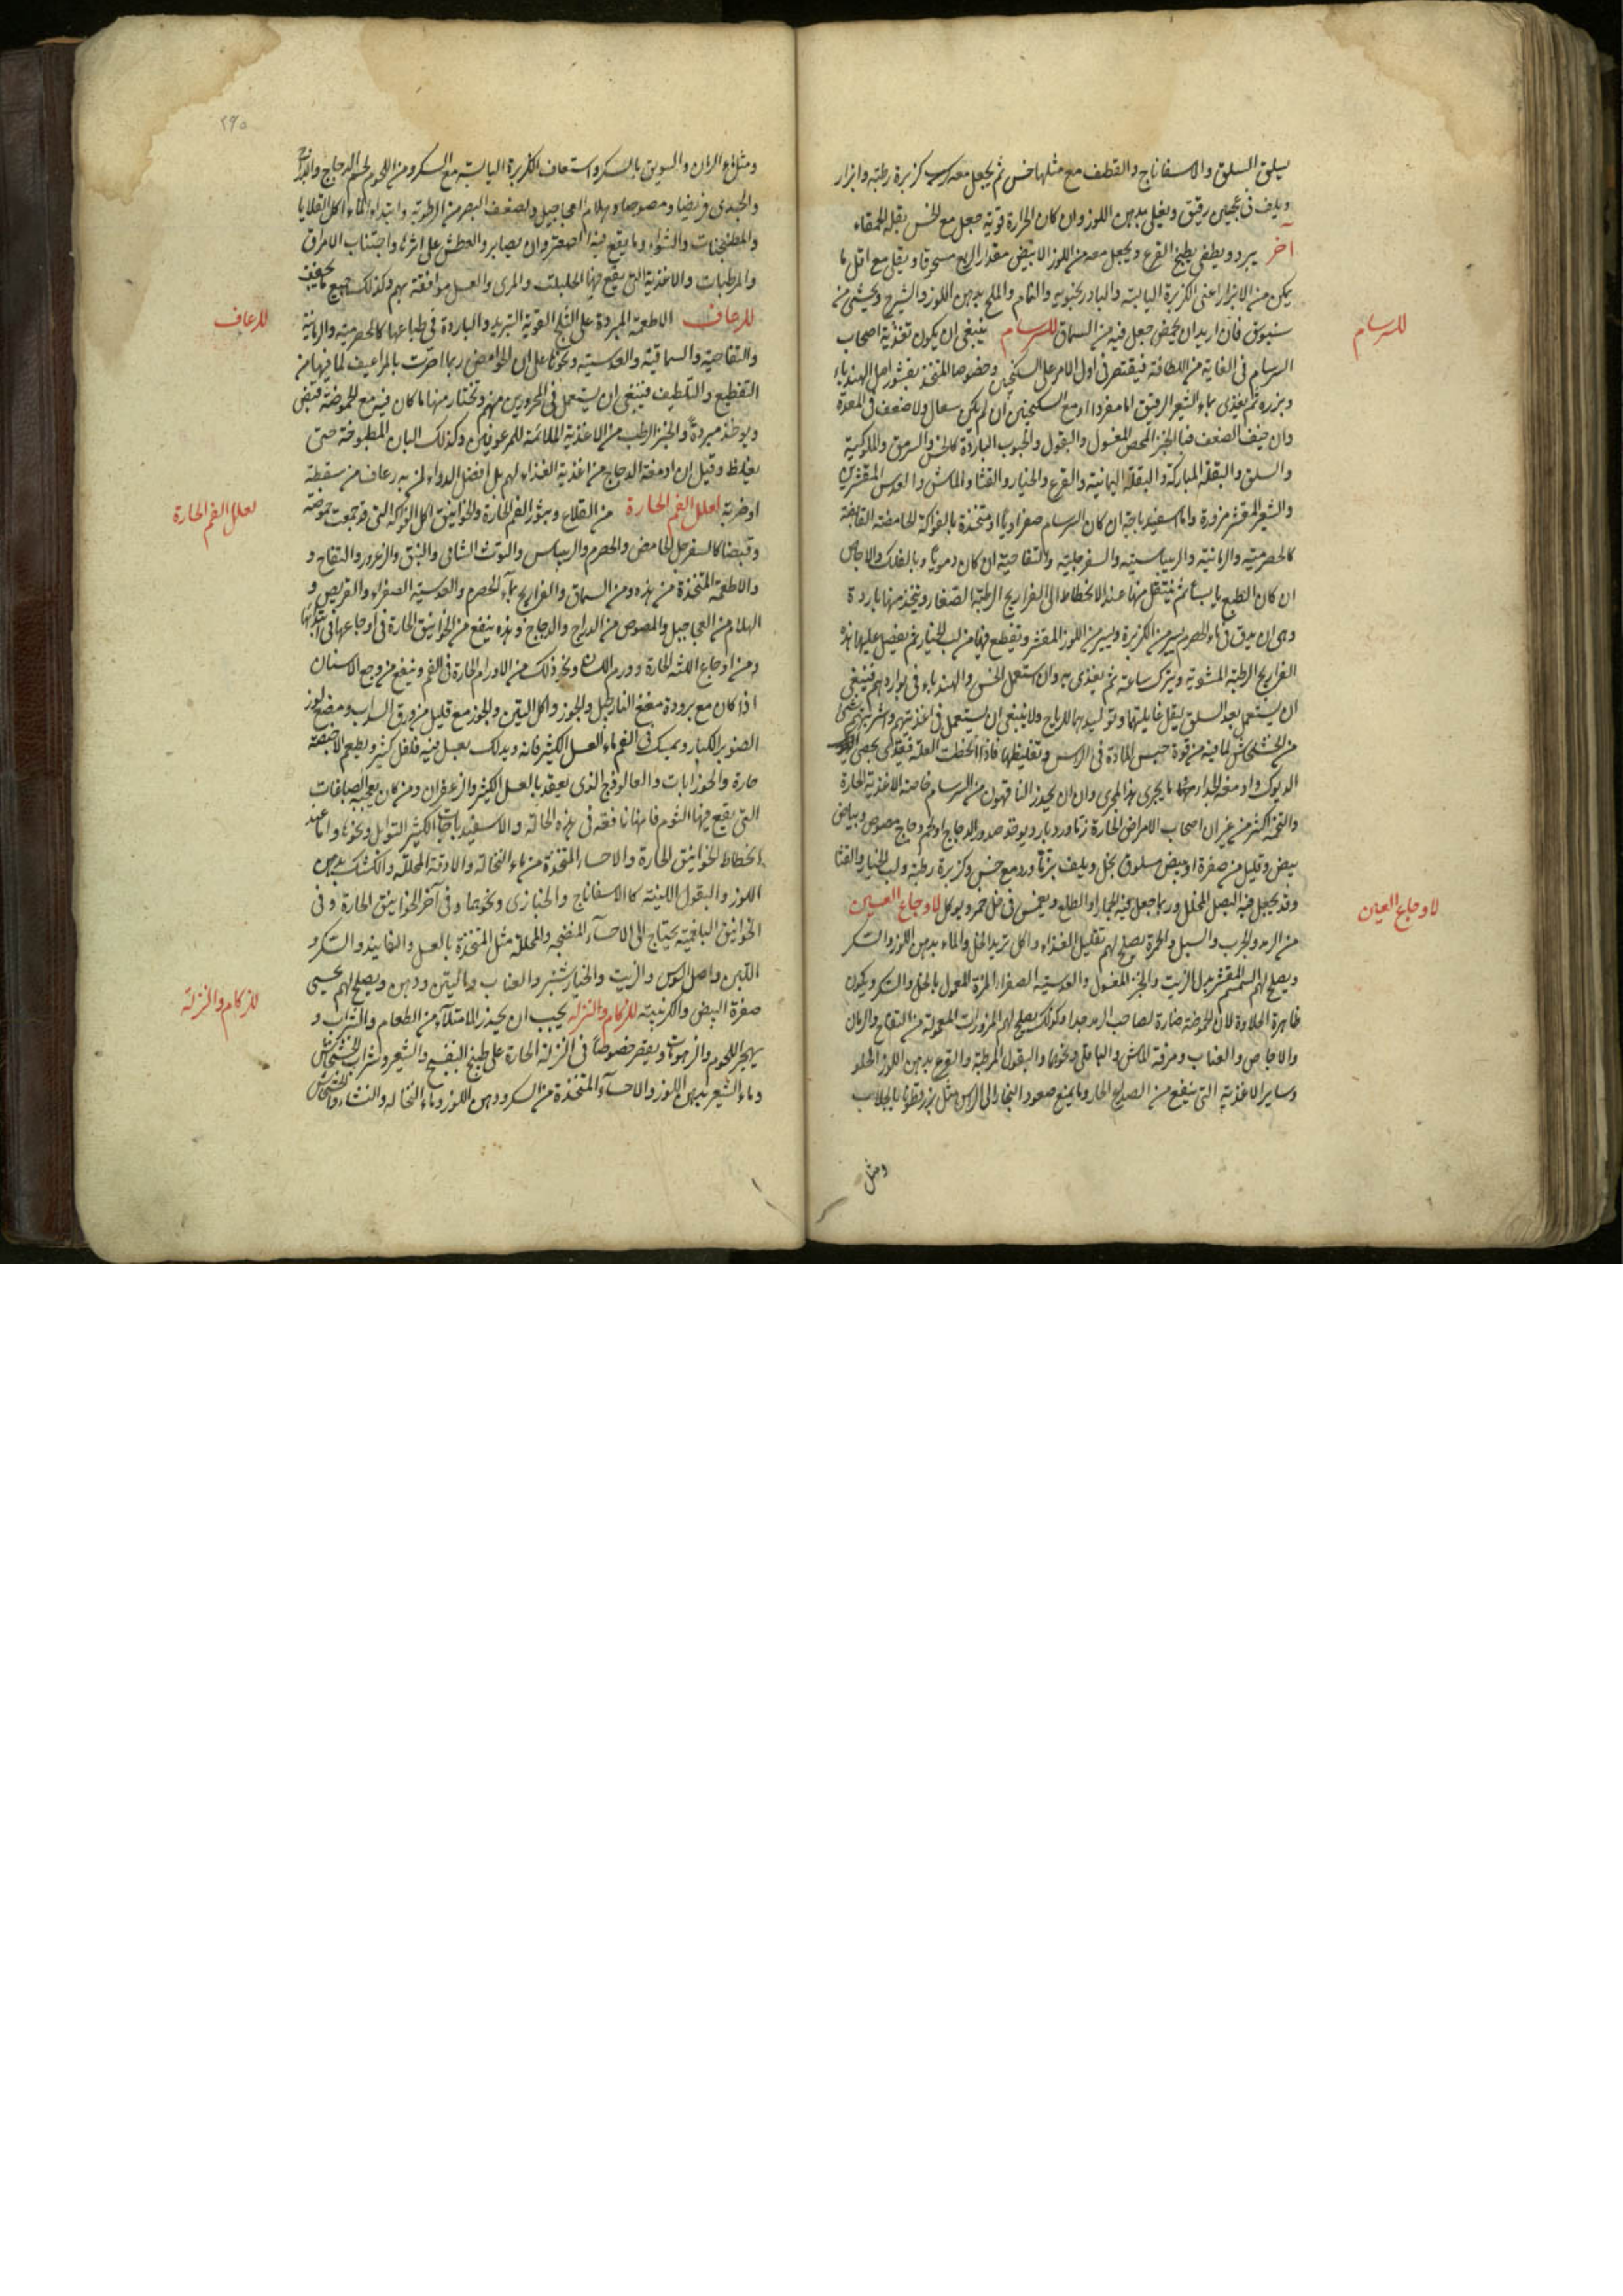 يسلق السلق والاسفاناج والقطف مع مثلها خس ثم يجعل معه كزبرة رطبة وابزار
ويلف فى عجين رقيق ويغلى بدهن اللوز وان كان الحرارة قوية جعل مع الخس بقلة الحمقاء
آخر يبرد ويطفى يطبخ القرع ويجعل معه من اللوز الابيض مقدار الربع مسحوقا ويقلى مع اقل ما
يمكن من الابزار اعنى الكزبرة اليابسة والبادرنجبويه والنمام والملح بدهن اللوز والشيرج ويحشى من
سنبوسق فان اريد ان يحمض جعل فيه من السماق للسرسام ينبغى ان يكون تغذية اصحاب
السرسام فى الغاية من اللطافة فيقتصر فى اول الامر على السكنجبين وخصوصا المتخذ بقشور اصل الهندباء
وبزره ثم يغذى بماء الشعير الرقيق اما مفردا او مع السكنجبين ان لم يكن سعال ولا ضعف فى المعدة
وان خيف الضعف فبالخبز المحمص المغسول والبقول والحبوب الباردة كالخس والسرمق والملوكية
والسلق والبقلة المباركة والبقلة اليمانية والقرع والخيار والقثا والماش والعدس المقشرين
والشعير المقشر مزورة واما اسفيدباجة ان كان السرسام صفراويا او متخذة بالفواكه الحامضة القابضة
كالحصرمية والرمانية والريباسية والسفرجلية والتفاحية ان كان دمويا وبالفلك والاجاص
ان كان الطبع يابسا ثم ينتقل منها عند الانحطاط الى الفراريج الرطبة الصغار ويتخذ منها باردة
وهى ان يدق فى ماء الحصرم يسير من الكزبرة ويسير من اللوز المقشر ويقطع فيها من لب الخيار ثم يفصل عليها هذه
الفراريج الرطبة المشوية ويترك ساعة ثم يغذى به وان استعمل الخس والهندباء فى بواردهم فينبغى
ان يستعمل بعد السلق ليقل غايلتهما وتوليدهما للرياح ولا ينبغى ان يستعمل فى اغذيتهم واشربتهم شئ
من الخشخاش لما فيه من قوة حبس المادة فى الراس وتغليظها فاذا انحطت العلة فيغذى بخصى
الديوك وادمغة الجدا ومما يجرى هذا المجرى وان ان يحذر الناقهون من السرسام خاصة الاغذية الحارة
والتخمة اكثر من غيران اصحاب الامراض الحارة زماورد بارد يوخذ صدور الدجاج او لحم دجاج مصوص وبياض
بيض وقليل من صفرة او بيض مسلوق بخل ويلف بزماورد مع خس وكزبرة رطبة ولب الخيار والقثا
وقد يجعل فيه البصل المخلل وربما جعل فيه الجمار او الطلع ويغمس فى خل خمر ويوكل لاوجاع العين
من الرمد والجرب والسبل والحمرة يصلح لهم تقليل الغذاء واكل ثريد الخل والماء بدهن اللوز والسكر
ويصلح لهم السمسم المقشر بدل الزيت والخبز المغسول والعدسية الصفراء المزة المعمول بالخل والسكر ويكون
ظاهرة الحلاوة لان الحموضة ضارة لصاحب الرمد جدا وكذلك يصلح لهم المزورات المعمولة من التفاح والرمان
والاجاص والعناب ومرقة الماش والباقلى ونحوها والبقول المرطبة والقرع بدهن اللوز الحلو
وساير الاغذية التى ينفع من الصداع الحار وما يمنع صعود البخار الى الراس مثل بزرقطونا بالجلاب
ومثل
للسرسام
لاوجاع العين
٢٩٥
ومثل ماء الرمان والسويق بالسكر واستفاف الكزبرة اليابسة مع السكر ومن اللحوم لحم الدجاج والدراج
والجدى قريضا ومصوصا وهلام العجاجيل ولضعف البصر من الرطوبة وابتداء الماء اكل القلايا
والمطبخنات والشواء وما يقع فيه الصعتر وان يصابر والعطش على اثرها واجتناب الامراق
والمرطبات والاغذية التى يقع فيها الحلبة والمرى والعسل موافقة بهم وكذلك جميع ما يجفف
للرعاف الاطعمة المبردة على الثلج القوية التبريد والباردة فى طباعها كالحصرمية والرمانية
والتفاحية والسماقية والعدسية ونحوها على ان الحوامض ربما اضرت بالمراعيف لما فيها من
التقطيع والتلطيف فينبغى ان يستعمل فى المحرورين منهم وتختار منها ما كان فيه مع الحموضة قبض
ويوخذ مبردة والخبز الرطب من الاغذية الملائمة للمرعوفين وكذلك البان المطبوخة حتى
يغلظ وقيل ان ادمغة الدجاج من اغذية الغذاء لهم بل افضل الدواء لمن به رعاف من سقطة
او ضربة لعلل الفم الحارة من القلاع وبثور الفم الحارة والخوانيق اكل الفواكه التى قد جمعت حموضة
وقبضا كالسفرجل الحامض والحصرم والريباس والتوت الشامى والنبق والزعرور والتفاح و
والاطعمة المتخذة من هذه ومن السماق والفراريج بماء الحصرم والعدسية الصفراء والقريص و
الهلام من العجاجيل والمصوص من الدراج والدجاج وهذه ينفع من الخوانيق الحارة فى اوجاعها فى ابتدائها
ومن اوجاع اللثة الحارة وورم اللهاة ونحو ذلك من الاورام الحارة فى الفم وينفع من وجع الاسنان
اذا كان مع برودة مضغ النارجيل والجوز واكل التين والجوز مع قليل من ورق السداب ومضغ لوز
الصنوبر الكبار ويمسك فى الفم ماء العسل الكثير فانه ويدلك بعسل فيه فلفل كثير ويطعم الاخبصة
حارة والجوزابات والفالوذج الذى يعقد بالعسل الكثير والزعفران ومن كان يعجبه الصباغات
التى يقع فيها الثوم فانها نافعة فى هذه الحالة والاسفيدباجات الكثير التوابل ونحوها واما عند
انحطاط الخوانيق الحارة والاحساء المتخذة من ماء النخالة والادوية المحللة والكشك بدهن
اللوز والبقول اللينة كالاسفاناج والخبازى ونحوها وفى آخر الخوانيق الحارة وفى
الخوانيق البلغمية يحتاج الى الاحساء المنضجة والمحللة مثل المتخذة بالعسل والفانيذ والسكر
التين واصل السوس والزيت والخيارشنبر والعناب وماء التين ودهن ويصلح لهم تحسى
صفرة البيض والكرنبية للزكام والنزلة يجب ان يحذر الامتلاء من الطعام والشراب و
يهجر اللحوم والزهومات ويقصر خصوصا فى النزلة الحارة على طبخ البنفسج والشعير وشراب الخشخاش
وماء الشعير بدهن اللوز والاحساء المتخذة من السكر ودهن اللوز وماء النخالة والنشاء والخشخاش
للرعاف
لعلل الفم الحارة
للزكام والنزلة